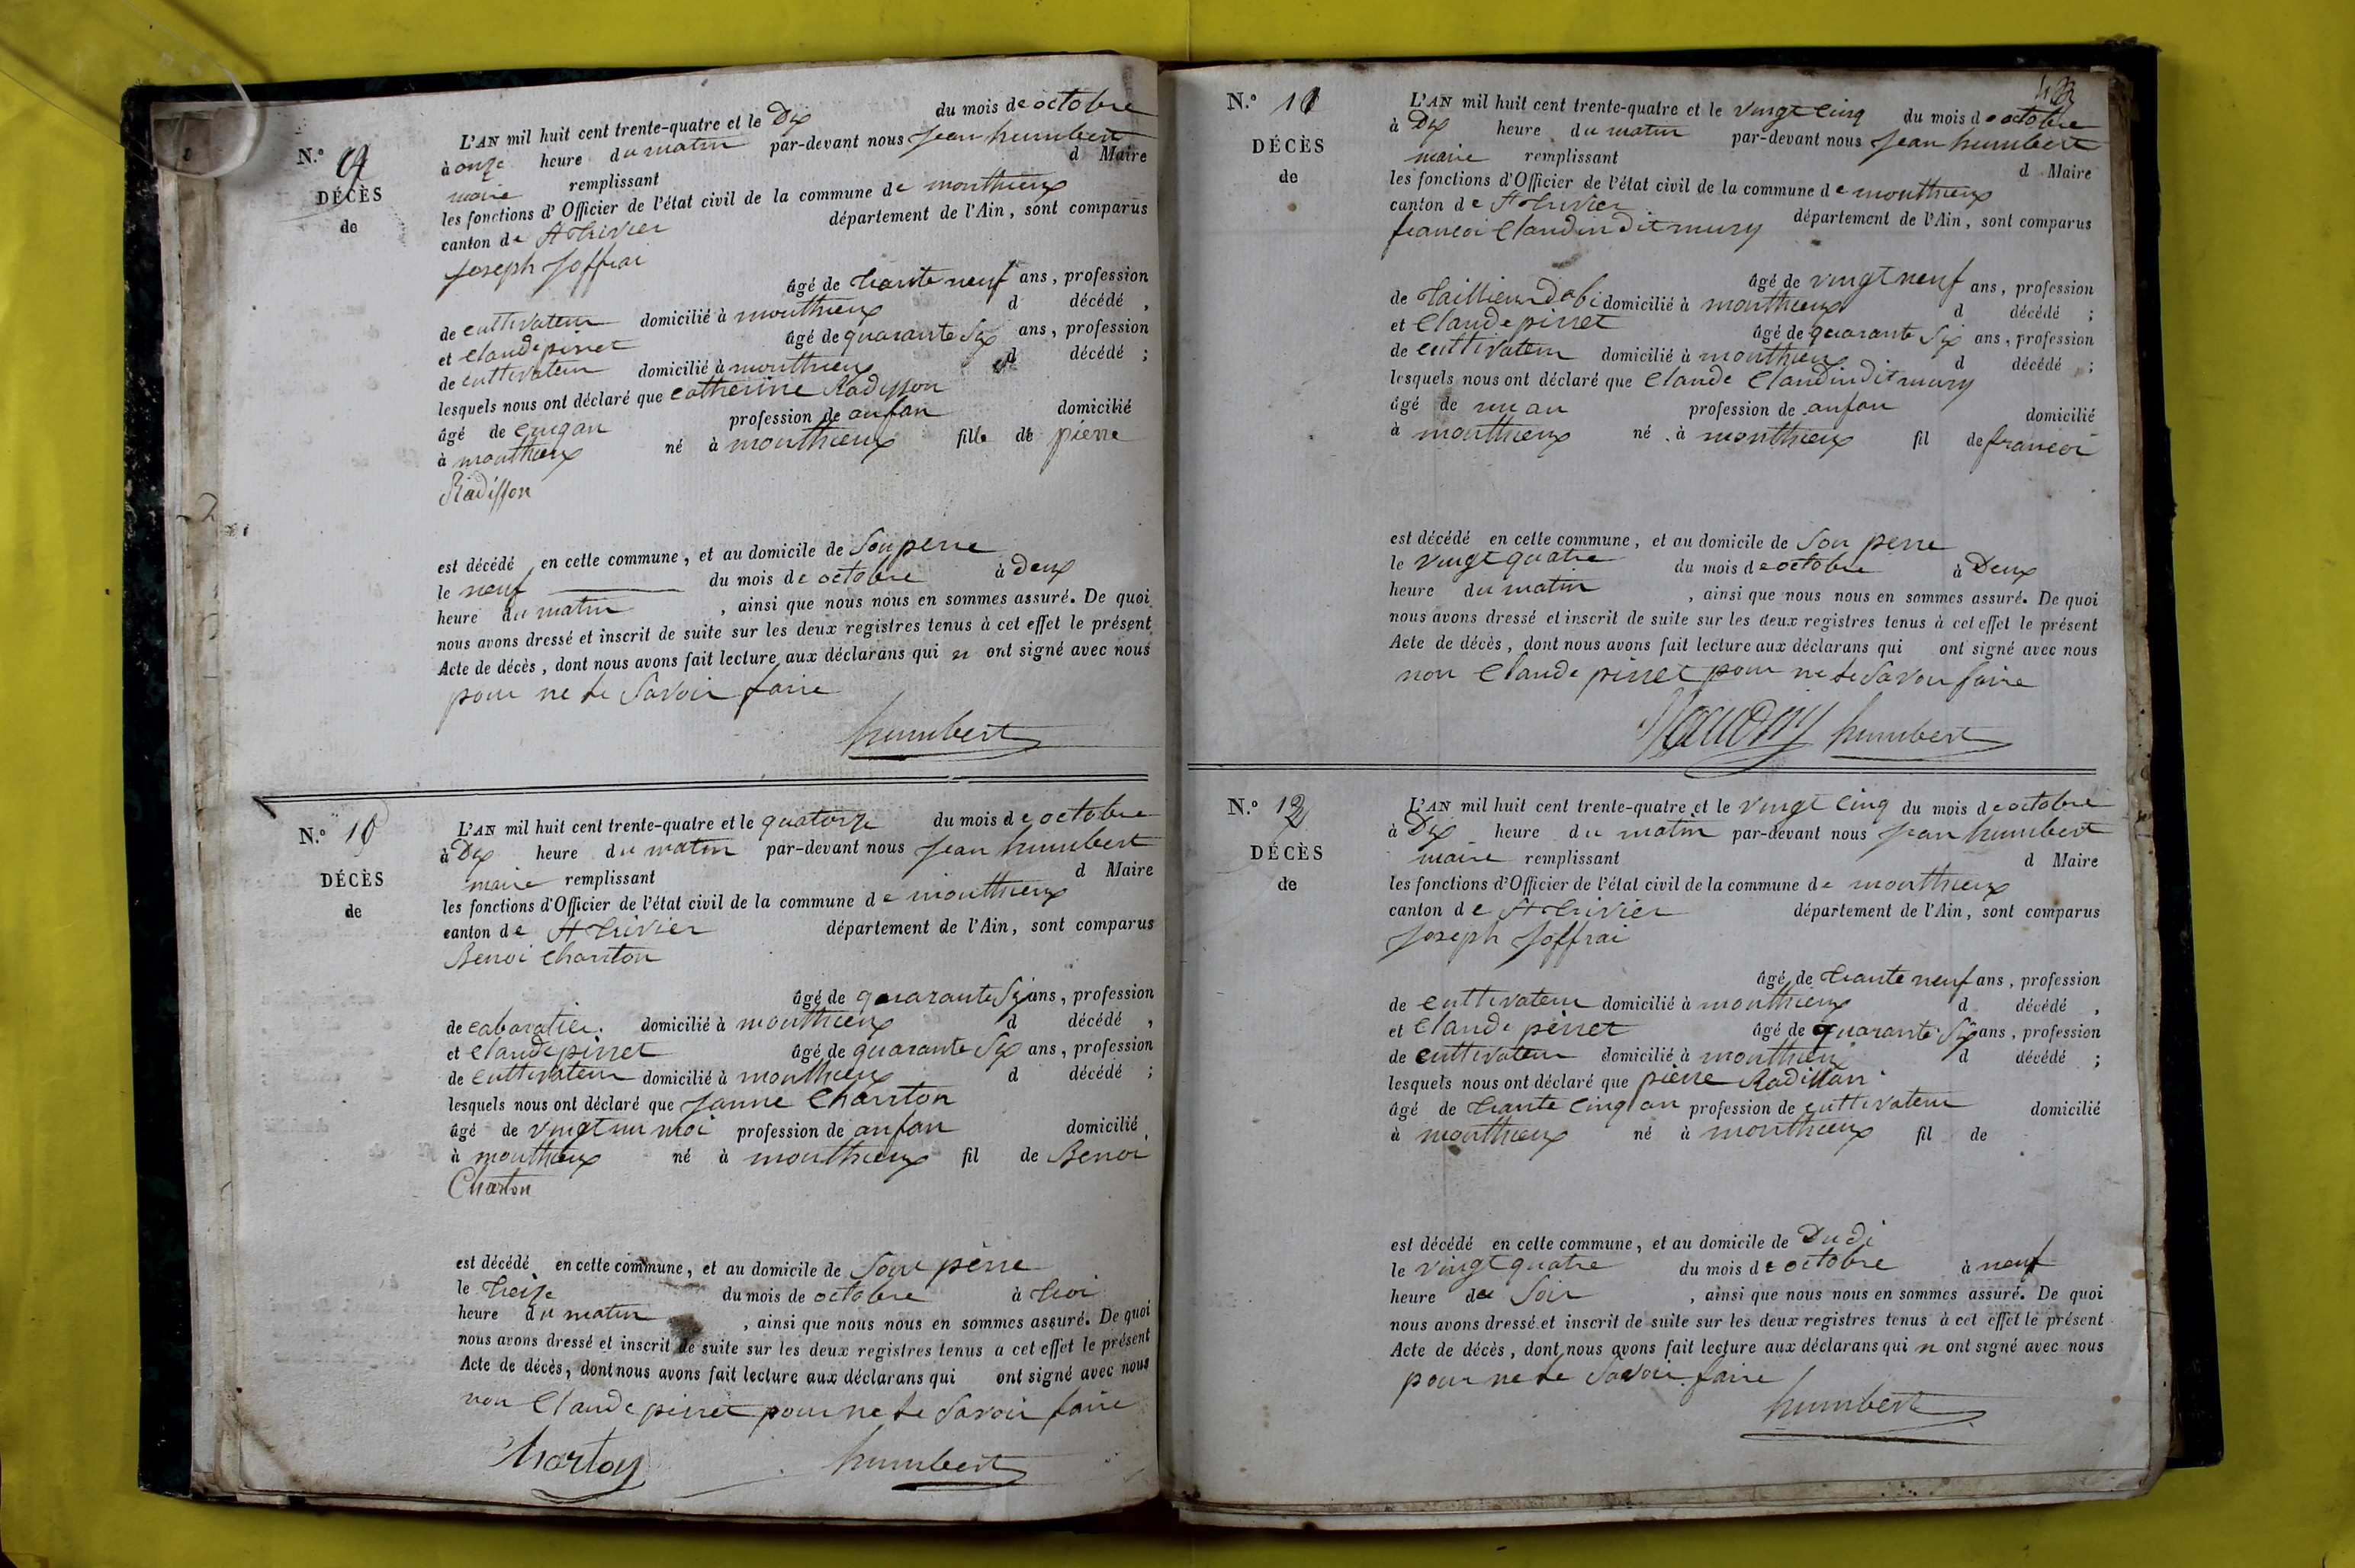 N.º 9
DÉCÈS
de
L'AN mil huit cent trente-quatre et le Dix du mois de octobre
à onze heure du matin par-devant nous Jean humbert
maire remplissant d Maire
les fonctions d'Officier de l'état civil de la commune de monthieux
canton de St trivier département de l'Ain, sont comparus
Joseph Joffrai
âgé de trante neuf ans, profession
de cultivateur domicilié à monthieux d décédé ,
et Claude pirret âgé de quarante Six ans, profession
de cultivateur domicilié à monthieux d décédé ;
lesquels nous ont déclaré que catherine Radisson
âgé de cinq an profession de anfan domicilié
à monthieux né à monthieux fille de pierre
Radisson
est décédé en cette commune, et au domicile de Son perre
le neuf du mois de octobre à Deux
heure du matin , ainsi que nous nous en sommes assuré. De quoi
nous avons dressé et inscrit de suite sur les deux registres tenus à cet effet le présent
Acte de décès, dont nous avons fait lecture aux déclarans qui n ont signé avec nous
pour ne le Savoir faire
humbert
N.º 10
DÉCÈS
de
L'AN mil huit cent trente-quatre et le quatorze du mois de octobre
à Dix heure du matin par-devant nous Jean humbert
maire remplissant d Maire
les fonctions d'Officier de l'état civil de la commune de monthieux
canton de St trivier département de l'Ain, sont comparus
Benoi Charton
âgé de quarante Six ans, profession
de cabaratier. domicilié à monthieux d décédé ,
et Claude pirret âgé de quarante Six ans, profession
de cultivateur domicilié à monthieux d décédé ;
lesquels nous ont déclaré que Janne Charton
âgé de vingt un moi profession de anfan domicilié
à monthieux né à monthieux fil de Benoi
Charton
est décédé en cette commune, et au domicile de Son perre
le treize du mois de octobre à troi
heure du matin , ainsi que nous nous en sommes assuré. De quoi
nous avons dressé et inscrit de suite sur les deux registres tenus à cet effet le présent
Acte de décès, dont nous avons fait lecture aux déclarans qui ont signé avec nous
non Claude pirret pour ne le Savoir faire
Charton humbert
N.º 11
DÉCÈS
de
L'AN mil huit cent trente-quatre et le vingt Cinq du mois de octobre
à Dix heure du matin par-devant nous Jean humbert
maire remplissant d Maire
les fonctions d'Officier de l'état civil de la commune de monthieux
canton de St trivier département de l'Ain, sont comparus
francoi Claudin dit mury
âgé de vingt neuf ans, profession
de taillieur Dabi domicilié à monthieux d décédé ;
et Claude pirret âgé de quarante Six ans, profession
de cultivateur domicilié à monthieux d décédé ;
lesquels nous ont déclaré que Claude Claudin dit mury
âgé de un an profession de anfan domicilié
à monthieux né à monthieux fil de francoi
est décédé en cette commune, et au domicile de Son perre
le vingt quatre du mois de octobre à Deux
heure du matin , ainsi que nous nous en sommes assuré. De quoi
nous avons dressé et inscrit de suite sur les deux registres tenus à cet effet le présent
Acte de décès, dont nous avons fait lecture aux déclarans qui ont signé avec nous
non Claude pirret pour ne le Savoir faire
humbert
N.º 12
DÉCÈS
de
L'AN mil huit cent trente-quatre et le vingt Cinq du mois de octobre
à Dix heure du matin par-devant nous Jean humbert
maire remplissant d Maire
les fonctions d'Officier de l'état civil de la commune de monthieux
canton de St trivier département de l'Ain, sont comparus
Joseph Joffrai
âgé de trante neuf ans, profession
de cultivateur domicilié à monthieux d décédé ,
et Claude pirret âgé de quarante Six ans, profession
de cultivateur domicilié à monthieux d décédé ;
lesquels nous ont déclaré que pierre Radisson
âgé de trante Cinq an profession de cultivateur domicilié
à monthieux né à monthieux fil de
est décédé en cette commune, et au domicile de Dudi
le vingt quatre du mois de octobre à neuf
heure de Soir , ainsi que nous nous en sommes assuré. De quoi
nous avons dressé et inscrit de suite sur les deux registres tenus à cet effet le présent
Acte de décès, dont nous avons fait lecture aux déclarans qui n ont signé avec nous
pour ne le Savoir faire
humbert